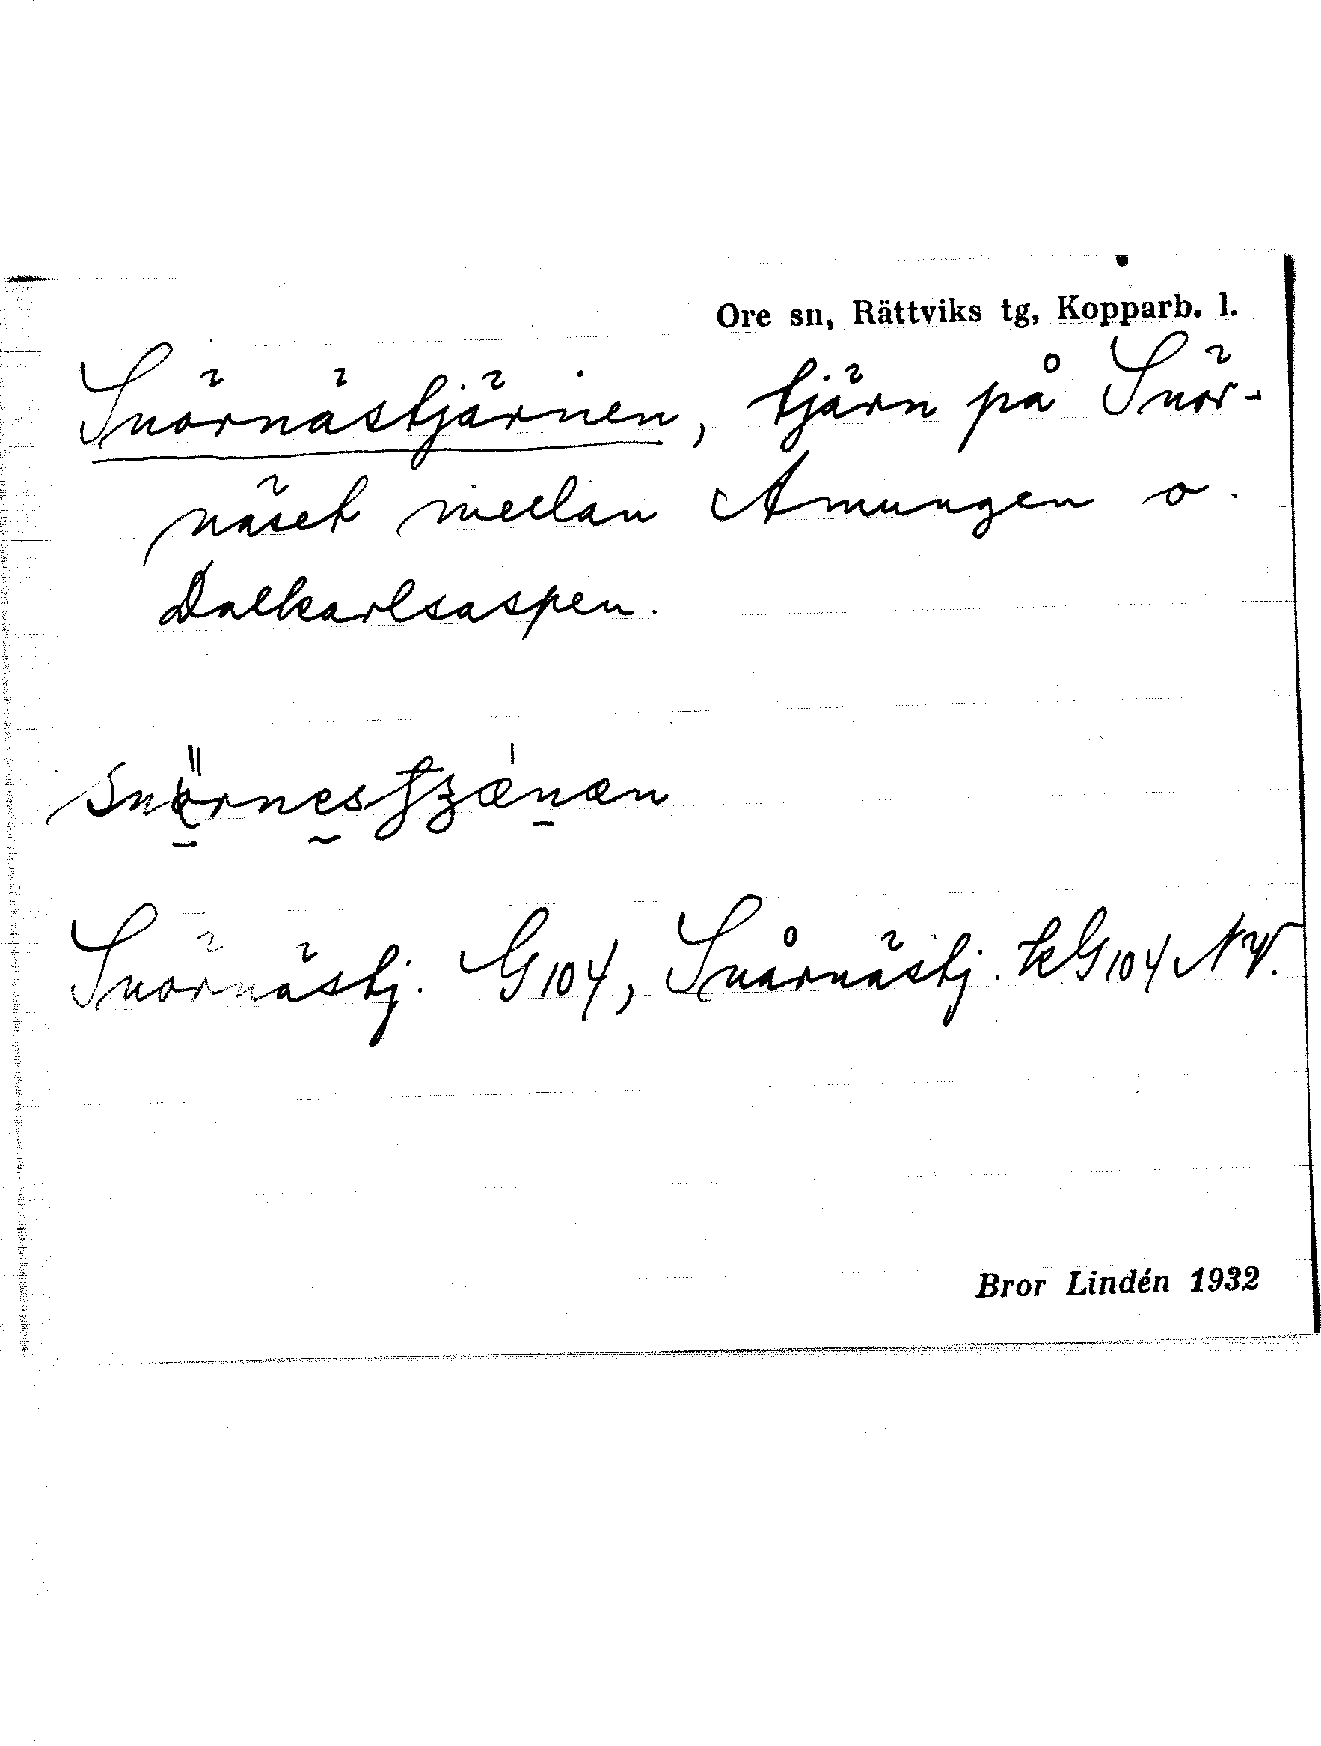 Ore sn, Rättviks tg, Kopparb. l.
Snörnästjärnen, tjärn på Snör-
näset mellan Amungen o.
Dalkarlsaspen.
Snörnästj. G104, Snårnästj. kG104 NV.
Bror Lindén 1932